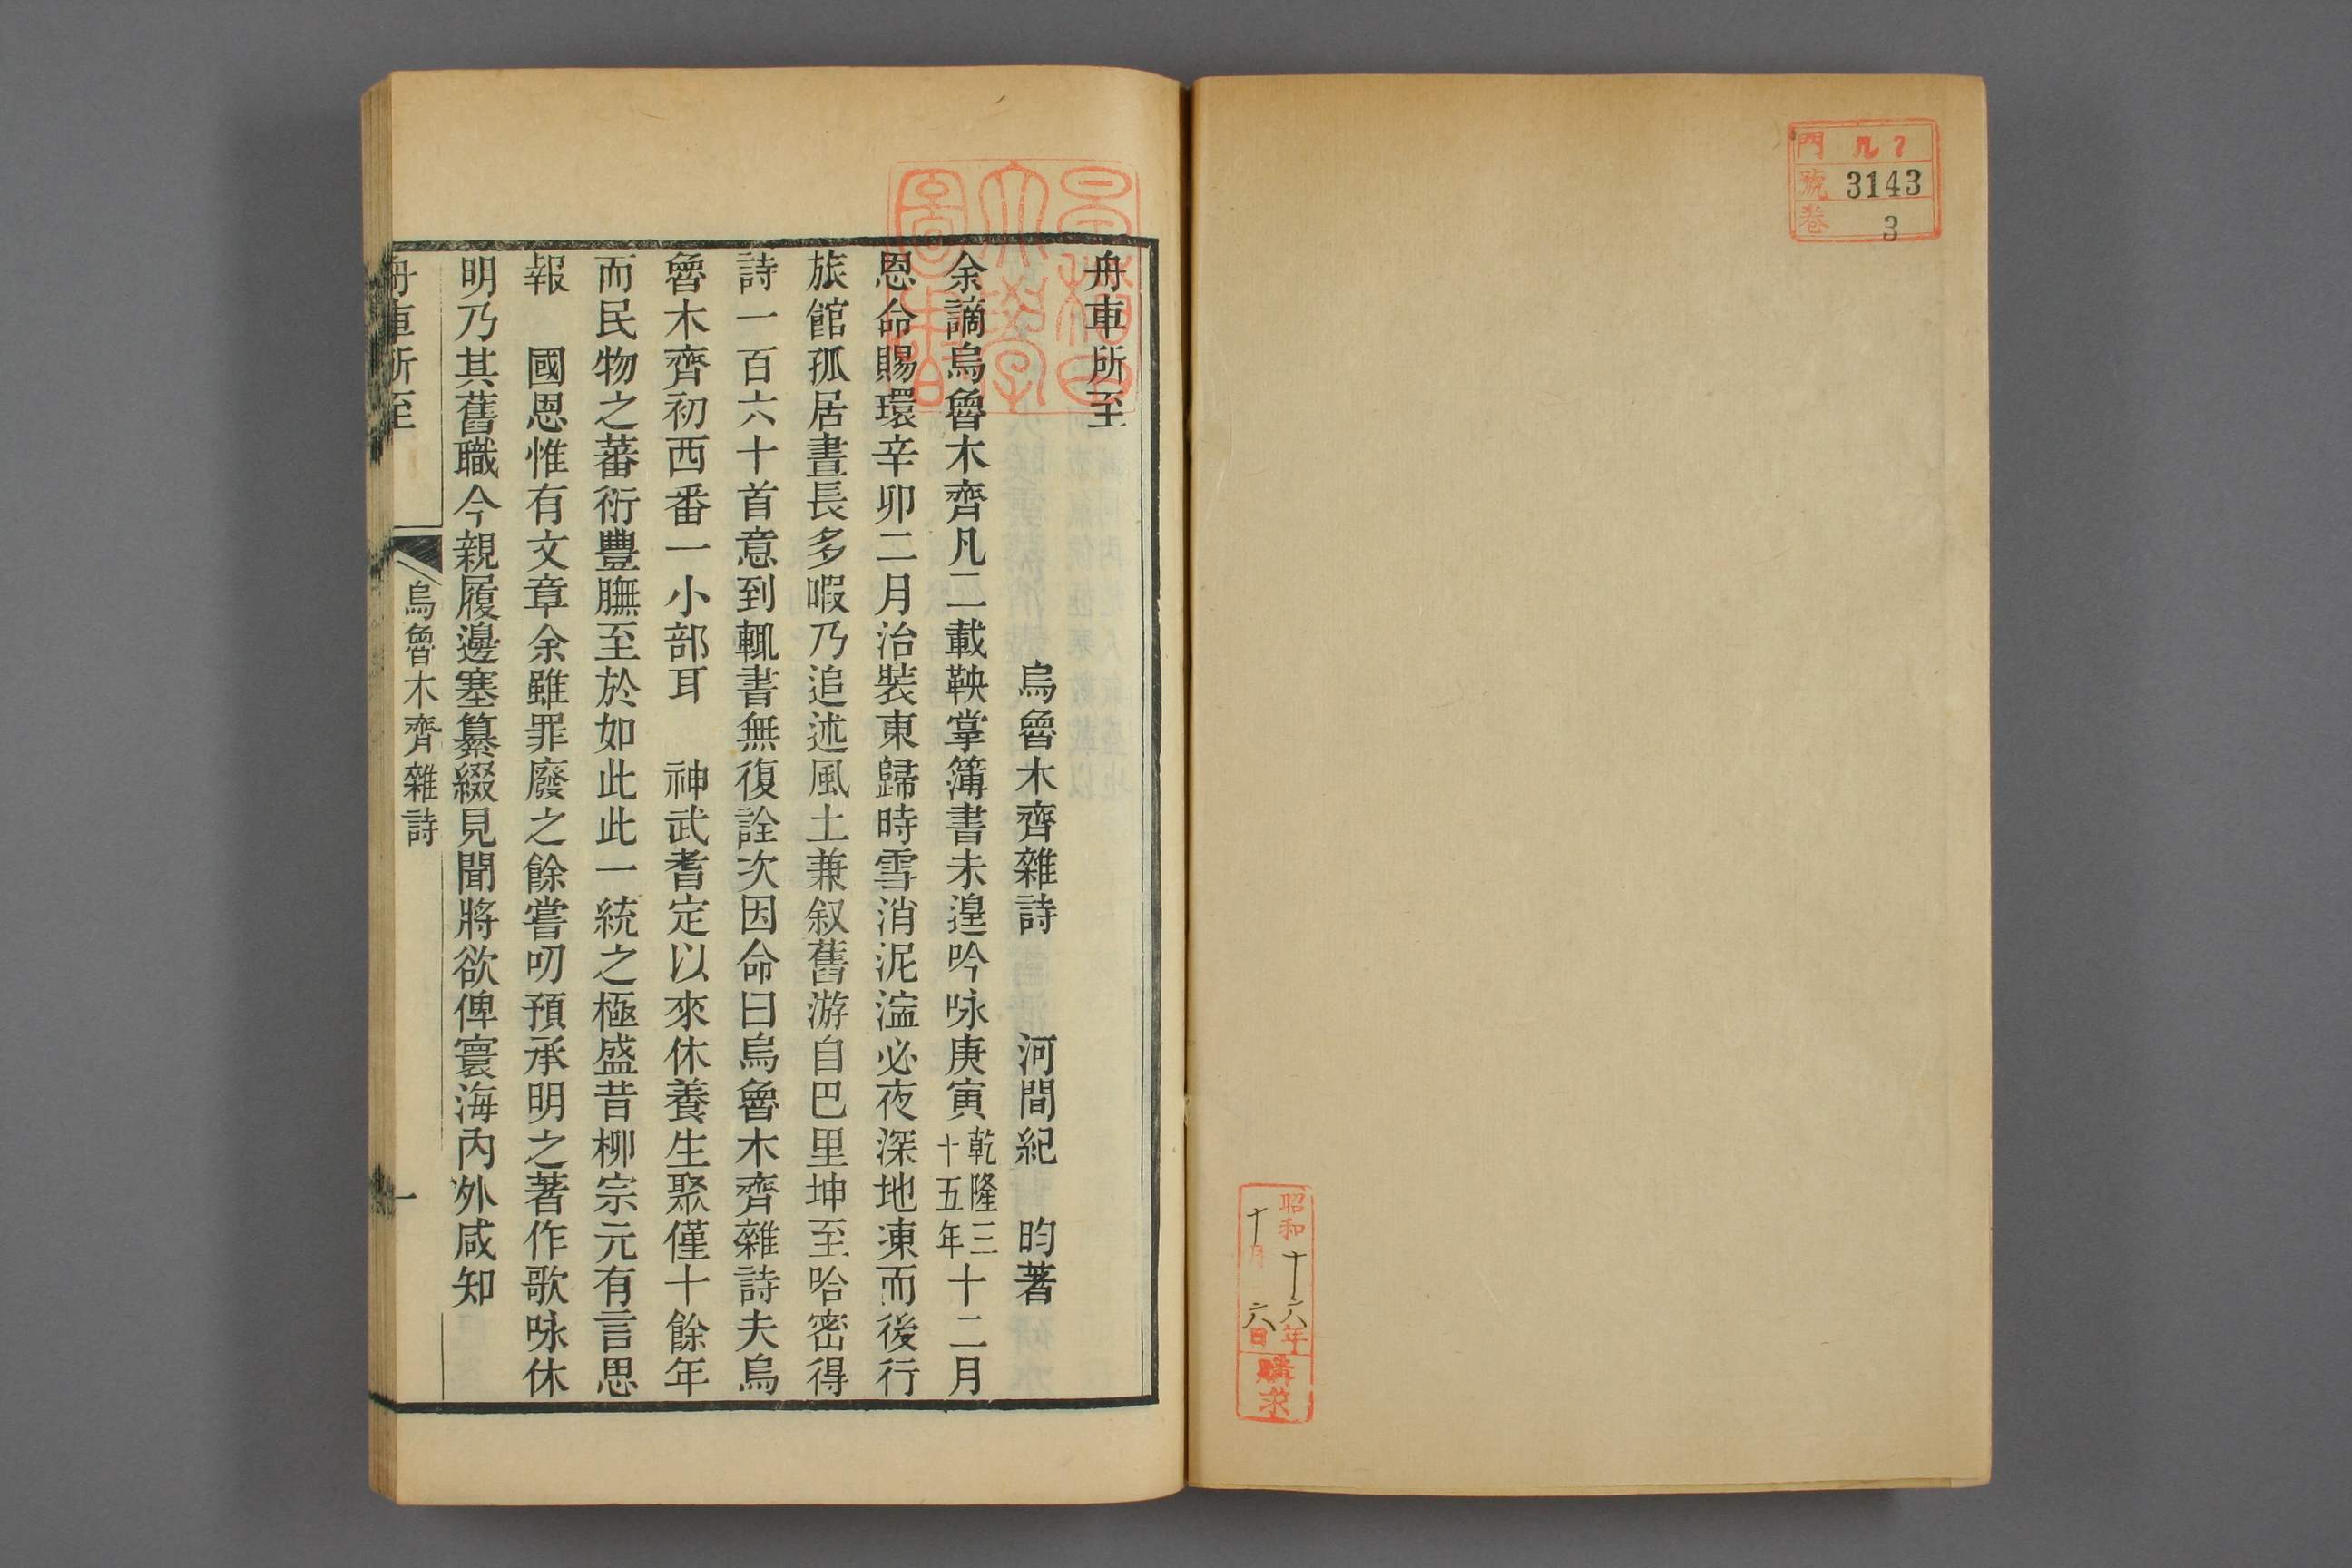 門 ル 7
號 3143
卷 3
昭和十六年
十月二八日
購求
早稲田大學圖書
舟車所至
烏魯木齊雜詩 河間紀 昀著
余謫烏魯木齊凡二載鞅掌簿書未遑吟咏庚寅乾隆三十五年十二月
恩命賜環辛卯二月治裝東歸時雪消泥濘必夜深地凍而後行
旅館孤居晝長多暇乃追述風土兼叙舊游自巴里坤至哈密得
詩一百六十首意到輒書無復詮次因命曰烏魯木齊雜詩夫烏
魯木齊初西番一小部耳 神武耆定以來休養生聚僅十餘年
而民物之蕃衍豐膴至於如此此一統之極盛昔柳宗元有言思
報 國恩惟有文章余雖罪廢之餘嘗叨預承明之著作歌咏休
明乃其舊職今親履邊塞纂綴見聞將欲俾寰海內外咸知
舟車所至 烏魯木齊雜詩 一